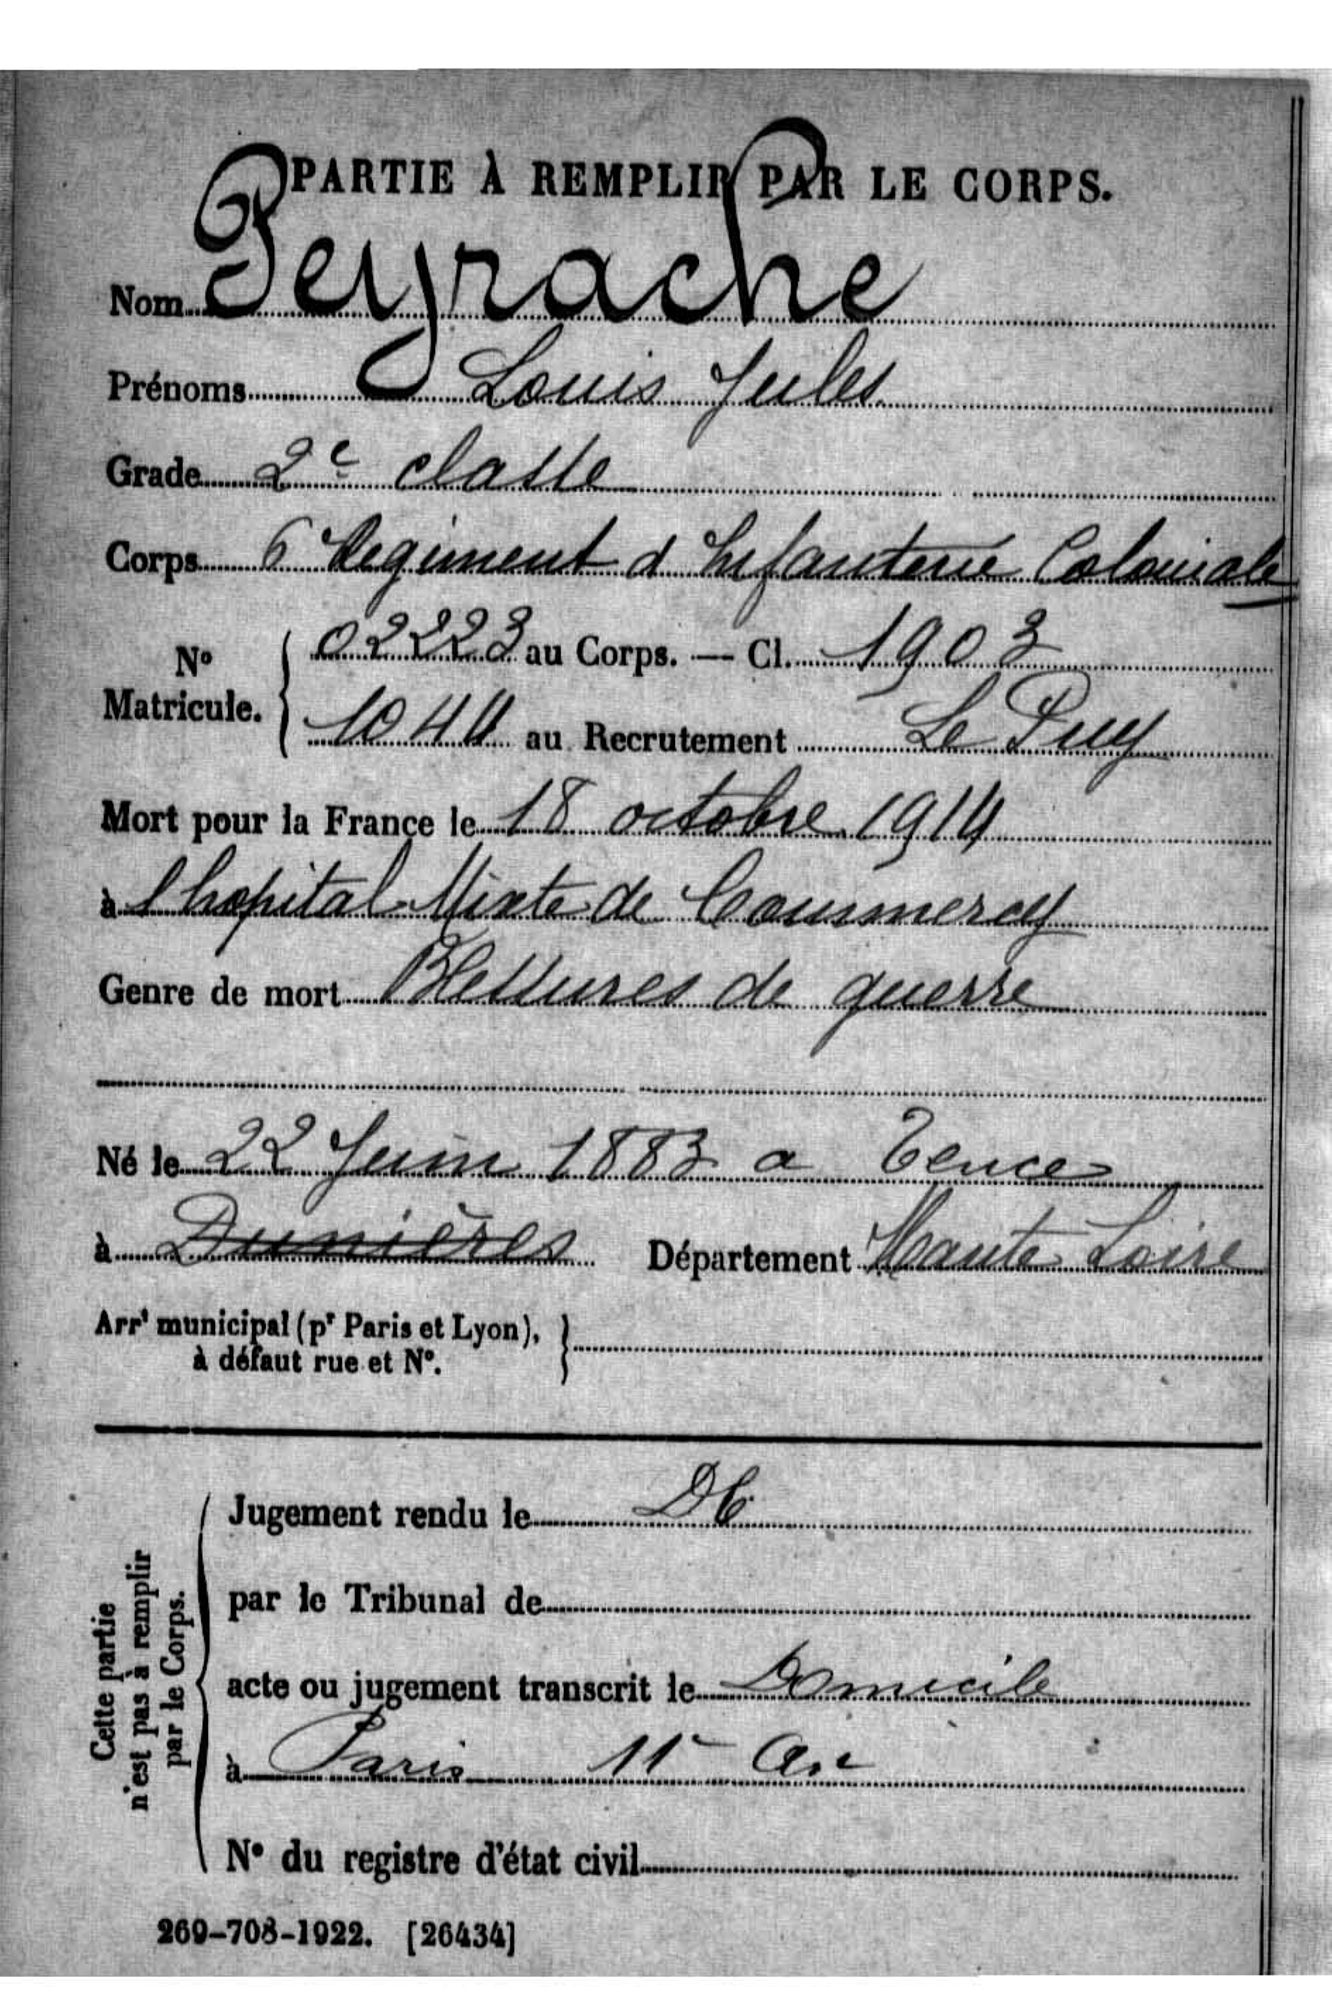 PARTIE À REMPLIR PAR LE CORPS.
Nom Peyrache
Prénoms Louis Jules
Grade 2e classe
Corps 6 Regiment d Infanterie Coloniale
No Matricule. { 02223 au Corps. — Cl. 1903
1044 au Recrutement Le Puy
Mort pour la France le 18 octobre 1914
à l hopital Mixte de Commercy
Genre de mort Blessures de guerre
Né le 22 Juin 1883 a Tence
à Dunières Département Haute Loire
Arrt municipal (pr Paris et Lyon), }
à défaut rue et No.
Cette partie
n'est pas à remplir
par le Corps.
Jugement rendu le DC
par le Tribunal de
acte ou jugement transcrit le Domicile
à Paris 11e Arr
No du registre d'état civil
269-708-1922. [26434]